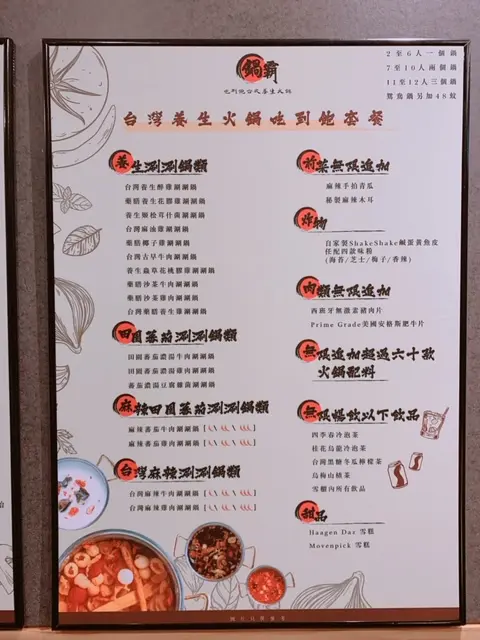 2至6人一個鍋
7至10人兩個鍋
11至12人三個鍋
鴛鴦鍋另加48蚊
鍋霸
台灣養生火鍋吃到飽套餐
養生涮涮鍋類
台灣養生醉雞涮涮鍋
藥膳養生花膠雞涮涮鍋
養生姬松茸什菌涮涮鍋
台灣麻油雞涮涮鍋
藥膳椰子雞涮涮鍋
台灣古早牛肉涮涮鍋
養生蟲草花桃膠雞涮涮鍋
藥膳沙茶牛肉涮涮鍋
藥膳沙茶雞肉涮涮鍋
台灣藥膳養生雞涮涮鍋
田園蕃茄涮涮鍋類
田園蕃茄濃湯牛肉涮涮鍋
田園蕃茄濃湯雞肉涮涮鍋
蕃茄濃湯豆腐雜菌涮涮鍋
麻辣田園蕃茄涮涮鍋類
麻辣蕃茄牛肉涮涮鍋
麻辣蕃茄雞肉涮涮鍋
台灣麻辣涮涮鍋類
台灣麻辣牛肉涮涮鍋
台灣麻辣雞肉涮涮鍋
前菜無限追加
麻辣手拍青瓜
秘製麻辣木耳
炸物
自家製ShakeShake鹹蛋黃魚皮
任配四款味粉
(海苔/芝士/梅子/香辣)
肉類無限追加
西班牙無激素豬肉片
Prime Grade美國安格斯肥牛片
無限追加超過六十款
火鍋配料
無限暢飲以下飲品
四季春冷泡茶
桂花烏龍冷泡茶
台灣黑糖冬瓜檸檬茶
烏梅山楂茶
雪櫃內所有飲品
甜品
Haagen Daz 雪糕
Movenpick 雪糕
圖片只供參考